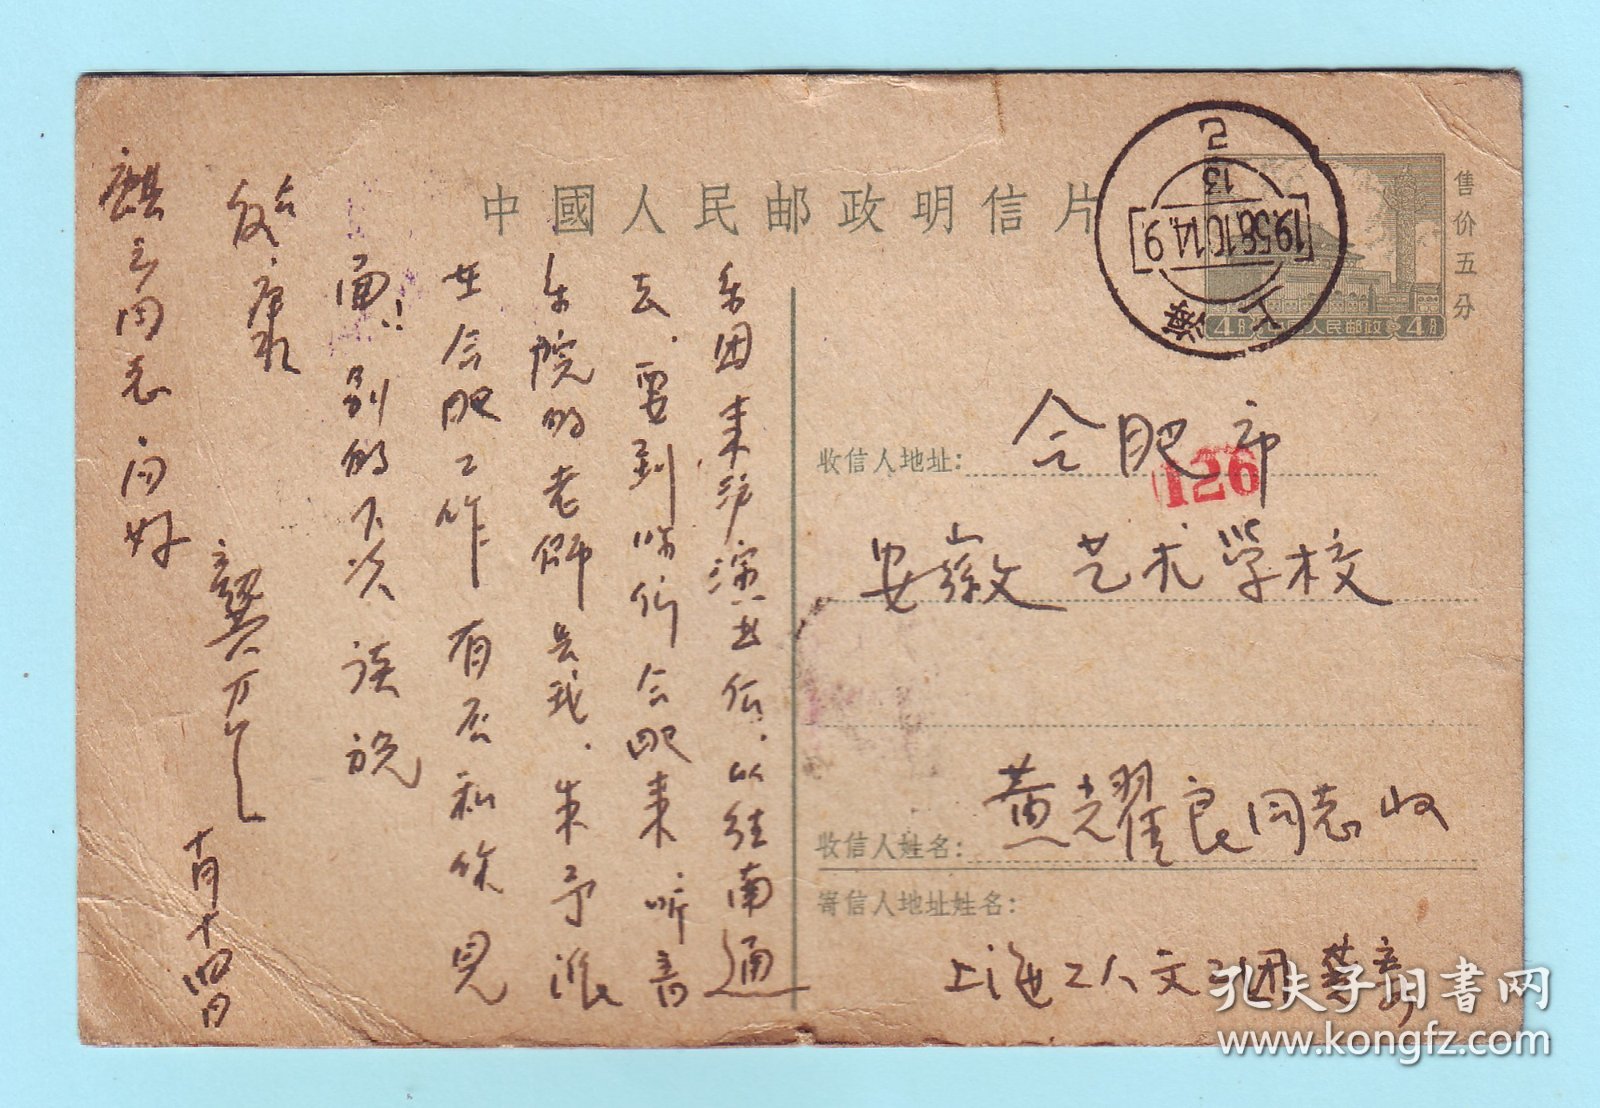 中國人民邮政明信片
售价五分
4分 中国人民邮政 4分
上海
1958.10.14.9
13
2
收信人地址:
合肥市
126
安徽艺术学校
收信人姓名:
黄耀良同志收
寄信人地址姓名:
上海工人文工团 龚
乐团来沪演出后,以经南通
去,要到 合肥来,听音
乐院的老师告我,朱予振
在合肥工作 有否和你见
面!别的下次谈说
敬
康
龚万
十月十四日
麒 同志 问好
孔夫子旧书网
www.kongfz.com